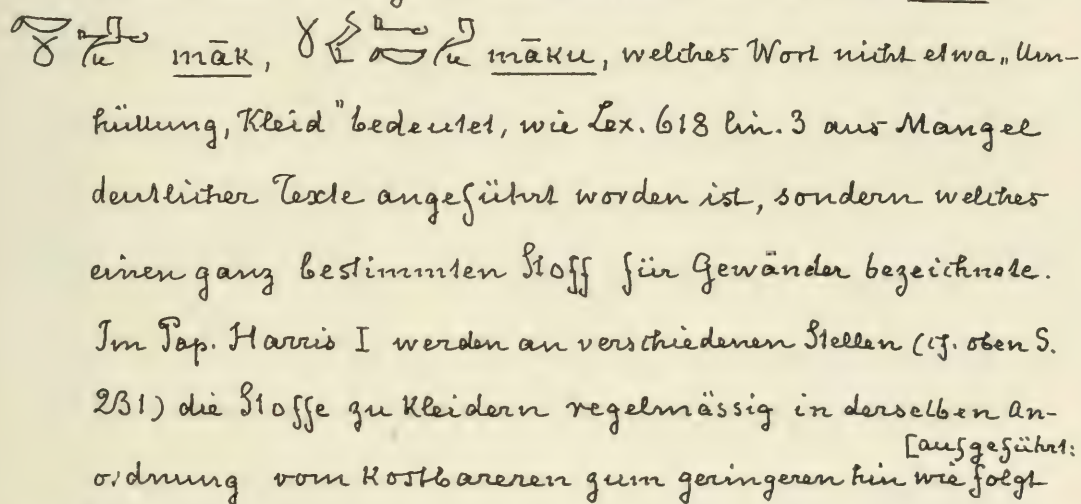 māk, māku, welches Wort nicht etwa „Um-
hüllung, Kleid" bedeutet, wie Lex. 618 lin. 3 aus Mangel
deutlicher Texte angeführt worden ist, sondern welches
einen ganz bestimmten Stoff für Gewänder bezeichnete.
Im Pap. Harris I werden an verschiedenen Stellen (cf. oben S.
231) die Stoffe zu Kleidern regelmässig in derselben An-
[aufgeführt:
ordnung vom Kostbareren zum geringeren hin wie folgt